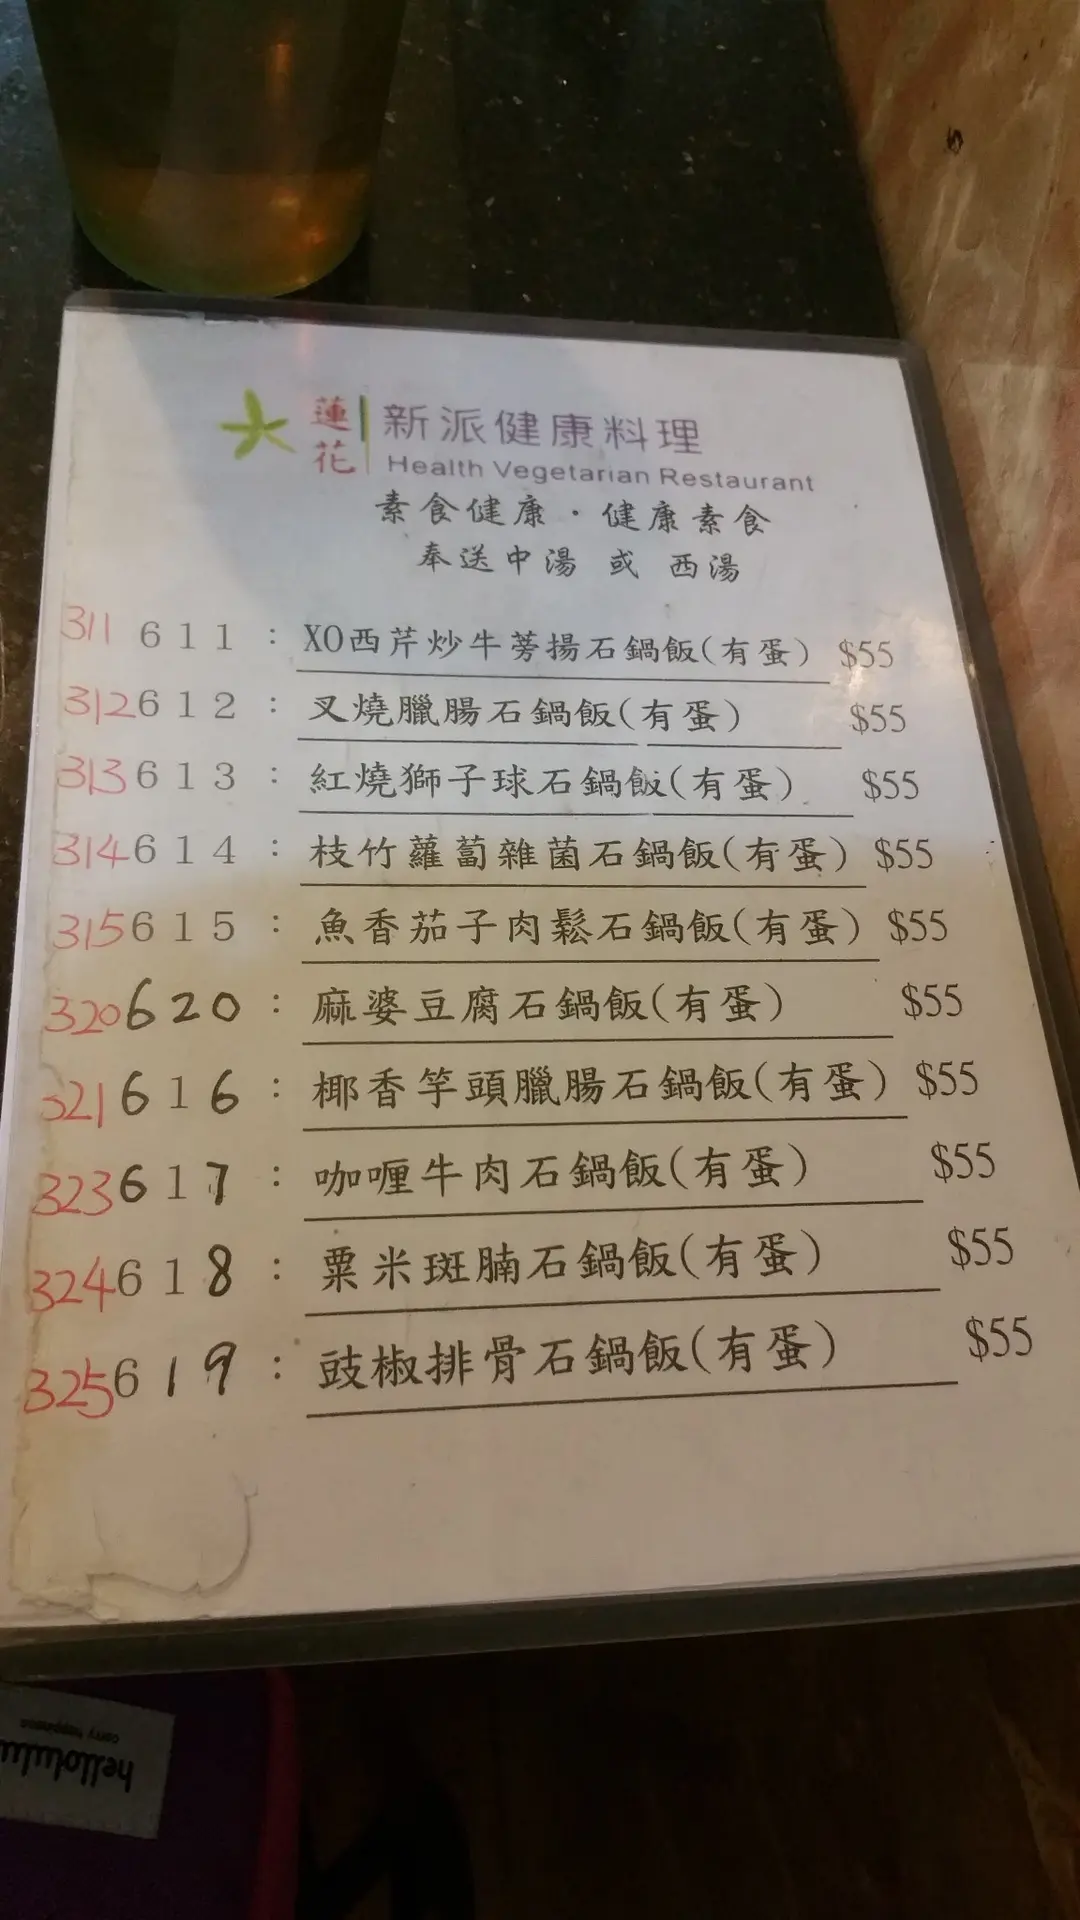 蓮花
新派健康料理
Health Vegetarian Restaurant
素食健康·健康素食
奉送中湯 或 西湯
311 611 : XO西芹炒牛蒡揚石鍋飯(有蛋) $55
312 612 : 叉燒臘腸石鍋飯(有蛋) $55
313 613 : 紅燒獅子球石鍋飯(有蛋) $55
314 614 : 枝竹蘿蔔雜菌石鍋飯(有蛋) $55
315 615 : 魚香茄子肉鬆石鍋飯(有蛋) $55
320 620 : 麻婆豆腐石鍋飯(有蛋) $55
321 616 : 椰香竽頭臘腸石鍋飯(有蛋) $55
323 617 : 咖喱牛肉石鍋飯(有蛋) $55
324 618 : 粟米斑腩石鍋飯(有蛋) $55
325 619 : 豉椒排骨石鍋飯(有蛋) $55
hellolulu
carry happiness